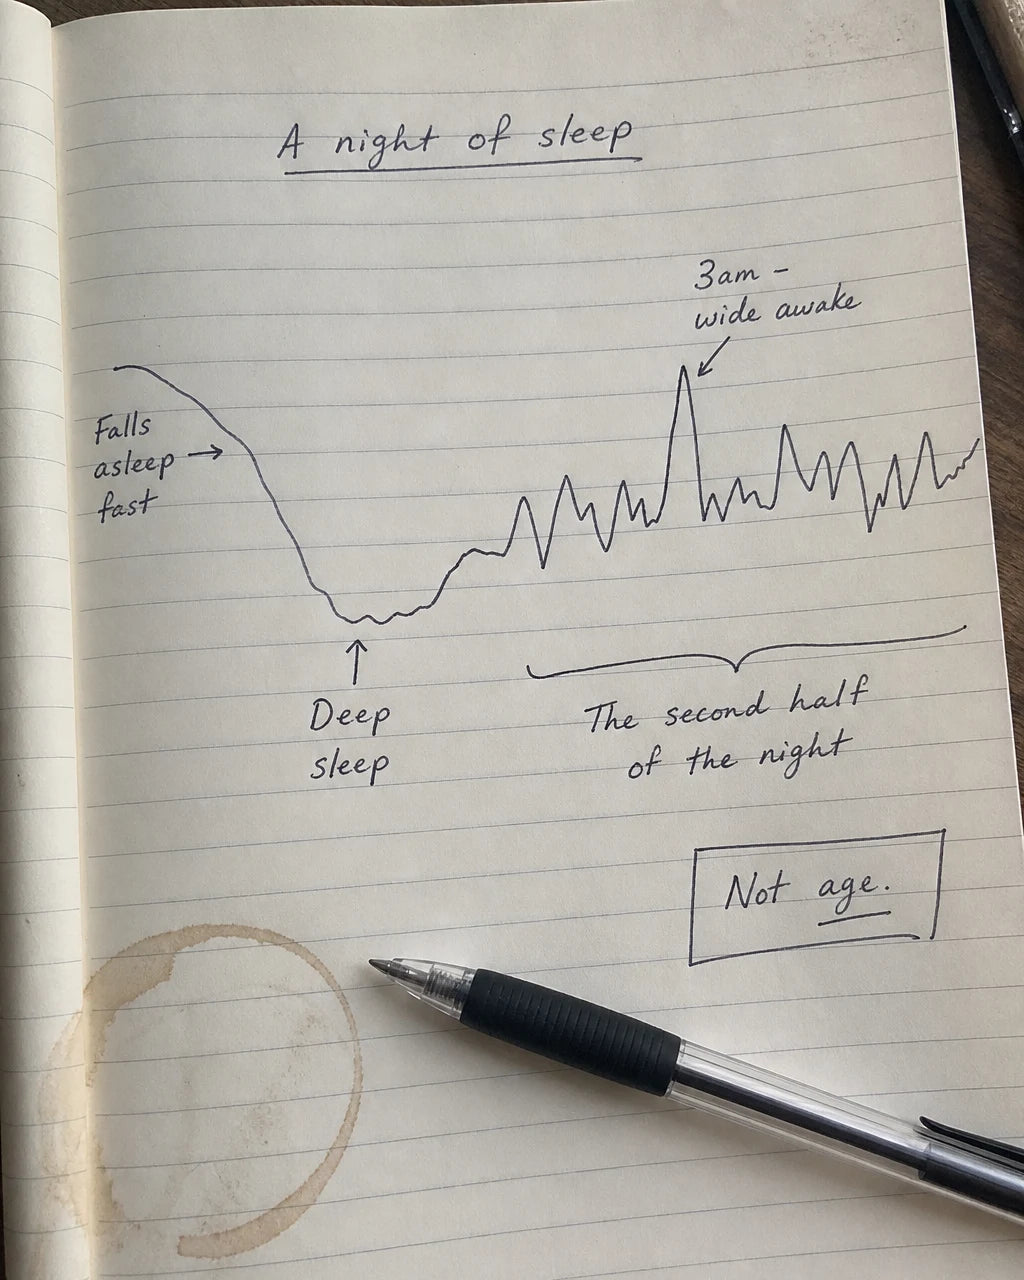 A night of sleep
3am –
wide awake
Falls
asleep
fast
Deep
sleep
The second half
of the night
Not age.